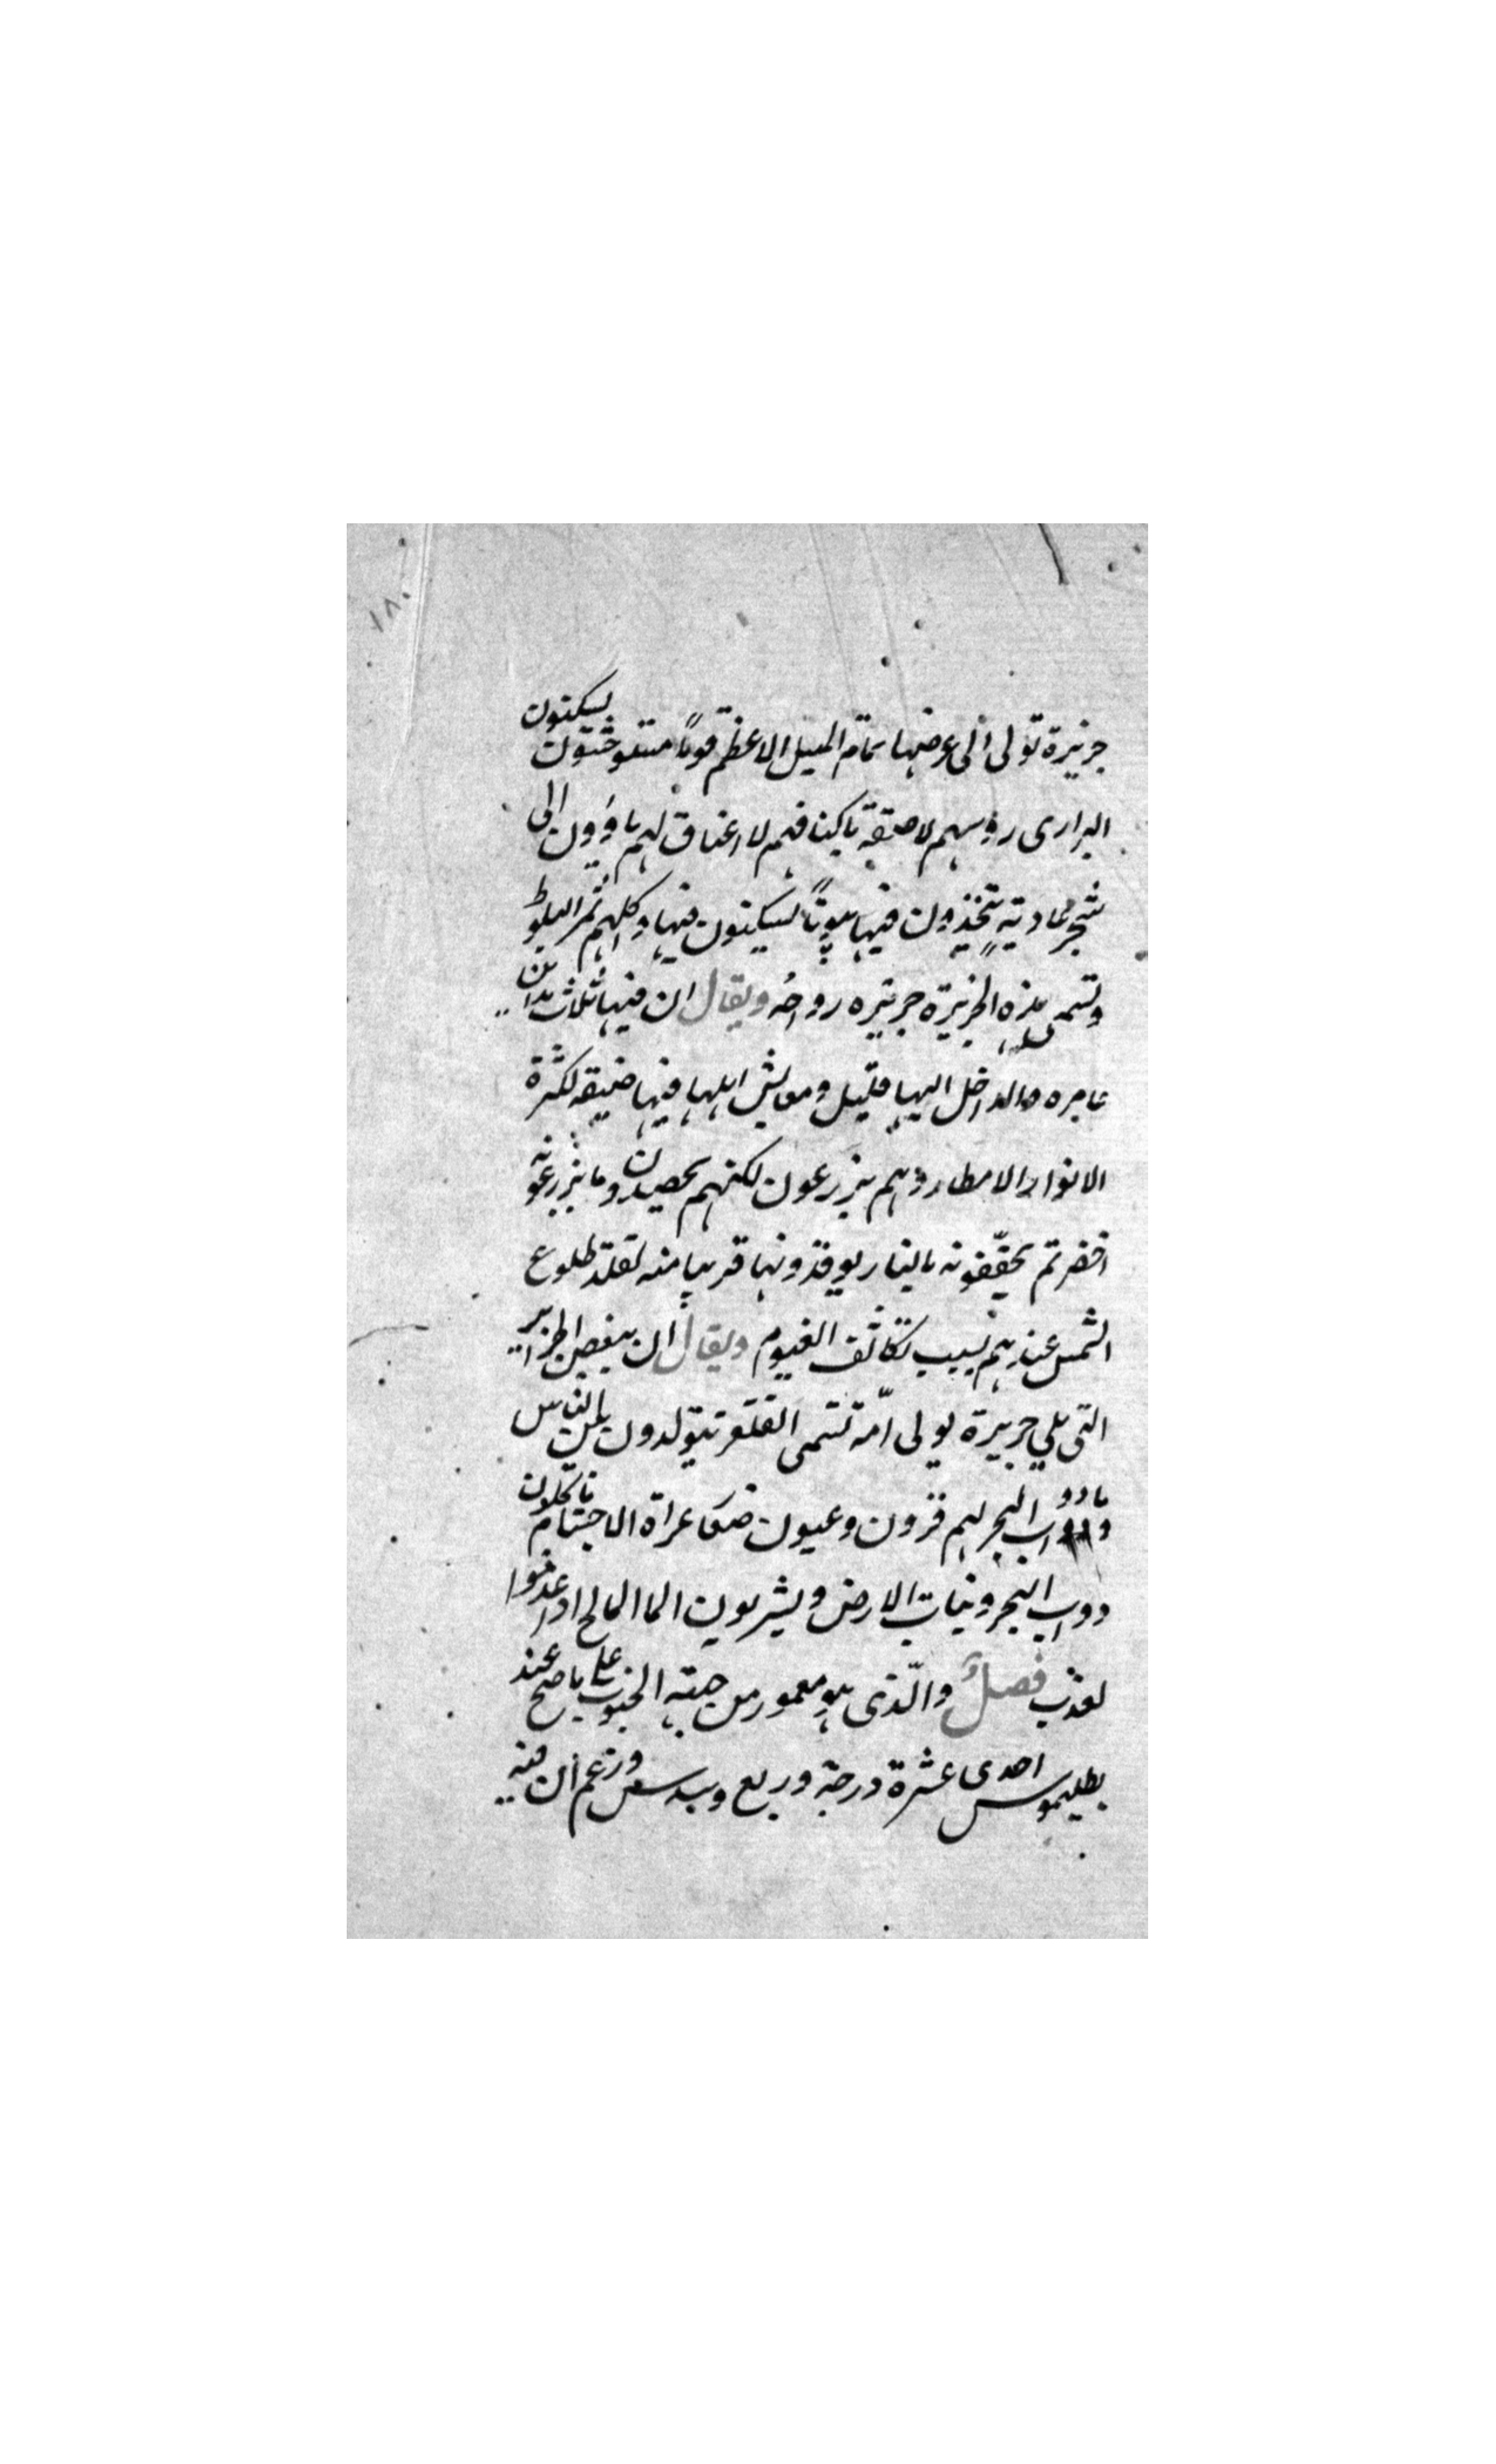 ١٨٠
جزيرة تولى الى عرضها تمام الميل الاعظم قوماً متوحشون يسكنون
البرارى رؤسهم لاصقة باكتافهم لا اعناق لهم ياؤون الى
شجر عاديةٍ يتخذون فيها بيوتاً ليسكنون فيها واكلهم ثمر البلوط
وتسمى هذه الجزيرة جزيره رواحُه ويقال ان فيها ثلاث مداين
عامره والداخل اليها قليل ومعايش اهلها فيها ضيقه لكثرة
الانواء والامطار وهم يزرعون لكنهم يحصدون ما يزرعونه
اخضر ثم يجفّفونه بالنار يوقدونها قريبا منه لقلة طلوع
الشمس عندهم بسبب تكاثف الغيوم ويقال ان ببعض الجزاير
التى تلي جزيرة يولى امّة تسمى يتولدون بين الناس
ودواب البحر لهم قرون وعيون عراة الاجسام ياكلون
دواب البحر ونبات الارض ويشربون الما المالح اذا عدموا
لعذب فصلٌ والّذى هو معمور من جهته الجنوب على ما صح عند
بطليموس احدى عشرة درجة وربع وسدس وزعم ان فيه